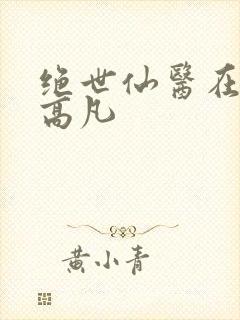 绝世仙醫在
高凡
黄小青